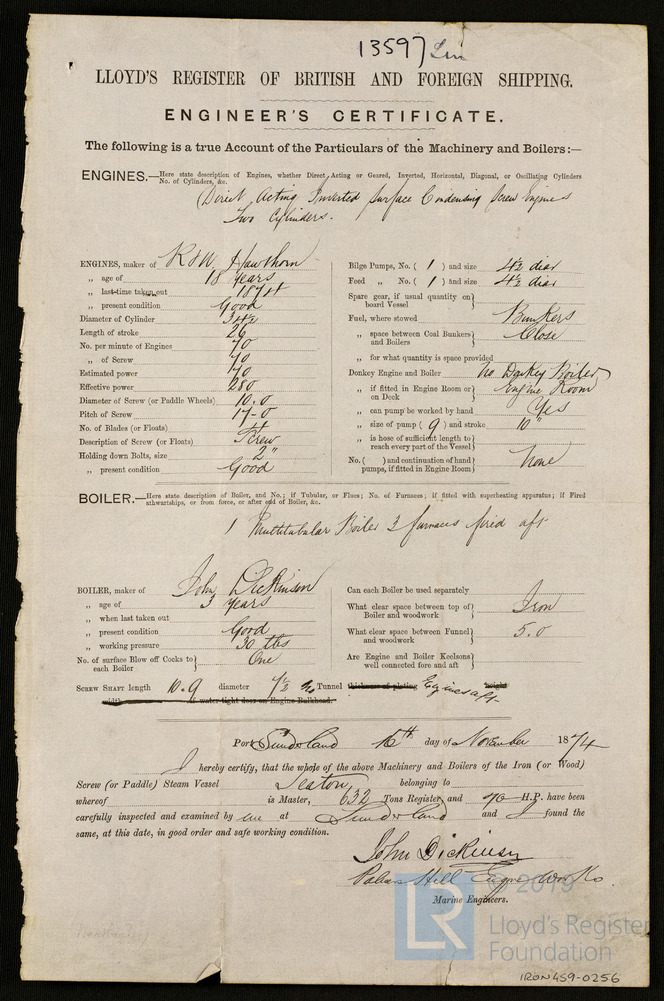 13597 Ln
LLOYD'S REGISTER OF BRITISH AND FOREIGN SHIPPING.
ENGINEER'S CERTIFICATE.
The following is a true Account of the Particulars of the Machinery and Boilers:—
ENGINES.—Here state description of Engines, whether Direct Acting or Geared, Inverted, Horizontal, Diagonal, or Oscillating Cylinders
No. of Cylinders, &c.
Direct Acting Inverted Surface Condensing Screw Engines
Two Cylinders.
ENGINES, maker of R & W Hawthorn
„ age of 18 years
„ last time taken out 1874
„ present condition Good
Diameter of Cylinder 34½
Length of stroke 26
No. per minute of Engines 70
„ of Screw 70
Estimated power 70
Effective power 280
Diameter of Screw (or Paddle Wheels) 10.0
Pitch of Screw 17-0
No. of Blades (or Floats) 4
Description of Screw (or Floats) Screw
Holding down Bolts, size 2"
„ present condition Good
Bilge Pumps, No. ( 1 ) and size 4½ diar
Feed „ No. ( 1 ) and size 4½ diar
Spare gear, if usual quantity on board Vessel
Fuel, where stowed Bunkers
„ space between Coal Bunkers and Boilers Close
„ for what quantity is space provided
Donkey Engine and Boiler No Donkey Boiler
„ if fitted in Engine Room or on Deck Engine Room
„ can pump be worked by hand Yes
„ size of pump ( 9 ) and stroke 10"
„ is hose of sufficient length to reach every part of the Vessel
No. ( ) and continuation of hand pumps, if fitted in Engine Room None
BOILER.—Here state description of Boiler, and No.; if Tubular, or Flues; No. of Furnaces; if fitted with superheating apparatus; if Fired
athwartships, or from force, or after end of Boiler, &c.
1 Multitubular Boiler 3 furnaces fired aft
BOILER, maker of John Dickinson
„ age of 3 years
„ when last taken out
„ present condition Good
„ working pressure 30 lbs
No. of surface Blow off Cocks to each Boiler One
Can each Boiler be used separately
What clear space between top of Boiler and woodwork Iron
What clear space between Funnel and woodwork 5.0
Are Engine and Boiler Keelsons well connected fore and aft
SCREW SHAFT length 10.9 diameter 7½ Tunnel thickness of plating Engines aft height
width water-tight door on Engine Bulkhead.
Port Sunderland 16th day of November 1874
I hereby certify, that the whole of the above Machinery and Boilers of the Iron (or Wood)
Screw (or Paddle) Steam Vessel Seaton belonging to
whereof is Master, 632 Tons Register and 70 H.P. have been
carefully inspected and examined by me at Sunderland and I found the
same, at this date, in good order and safe working condition.
John Dickinson
Palmers Hill Engine Works.
Marine Engineers.
© 2019
LR
Lloyd's Register
Foundation
IRON459-0256